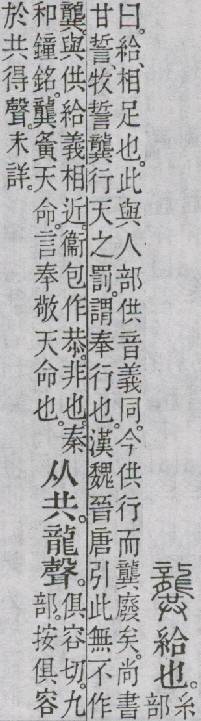 龔給也。糸
部
曰。給,相足也。此與人部供音義同。今供行而龔廢矣。尚書
甘誓,牧誓龔行天之罰。謂奉行也。漢魏晉唐引此無不作
龔。與供給義相近。衞包作恭。非也。秦
和鐘銘。龔夤天命。言奉敬天命也。
从共。龍聲。
俱容切。九
部。按俱容
於共得聲。未詳。